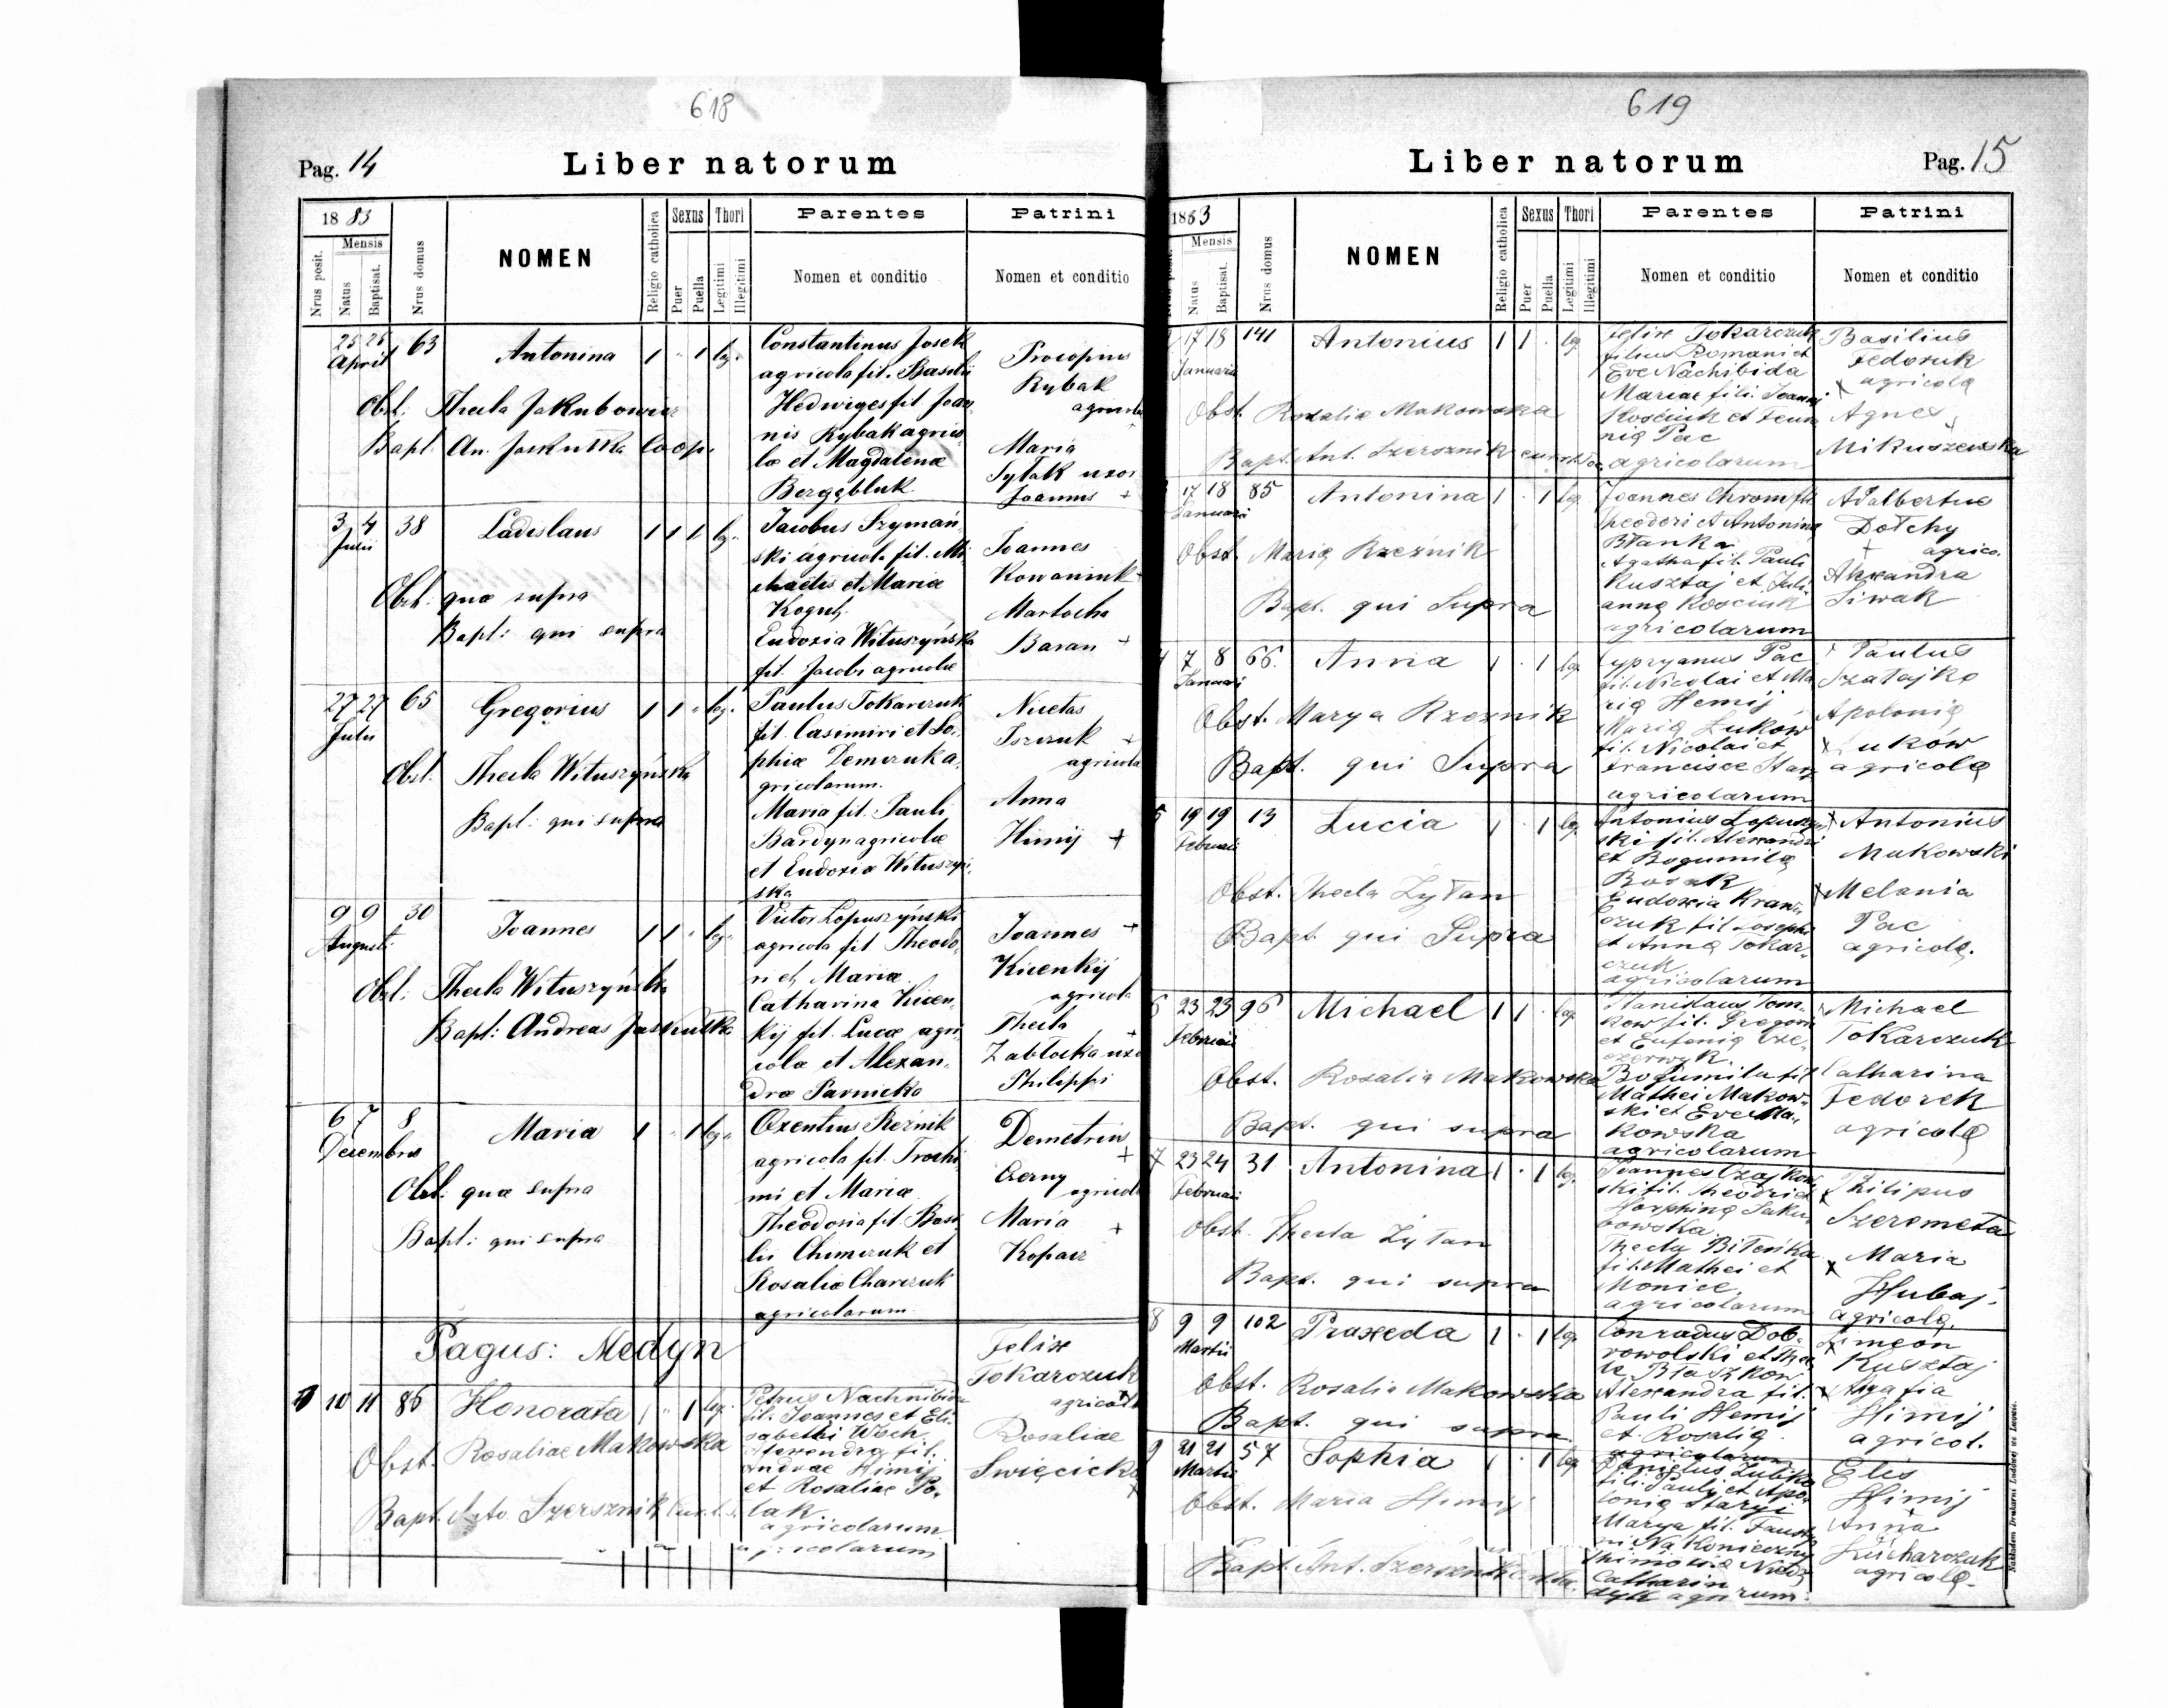 618
Pag. 14
Liber natorum
1883
Nrus posit.
Mensis
Natus
Baptisat.
Nrus domus
NOMEN
Religio catholica
Sexus
Puer
Puella
Thori
Legitimi
Illegitimi
Parentes
Nomen et conditio
Patrini
Nomen et conditio
25 26 April 63 Antonina 1 " 1 leg.
Obst: Thecla Jakubowicz
Bapt. An. Jaskulka Coop.
Constantinus Josek
agricola fil. Basilii
Hedwiges fil Joan
nis Rybak agrico
lae et Magdalenae
Procopius
Rybak
agricola
Maria
Sytak uxor
Joannis +
3 4 Julii 38 Ladislaus 1 1 1 leg.
Obst. quae supra
Bapt: qui supra
Jacobus Szymań
ski agricola fil. Mi
chaelis et Mariae
Kogut,
Eudoxia Wituszyńska
fil. Jacobi agricolae
Joannes
Martocha
Baran +
27 27 Julii 65 Gregorius 1 1 " leg.
Obst. Thecla Wituszyńska
Bapt: qui supra
Paulus Tokarczuk
fil. Casimiri et So
phiae Demczuk a
gricolarum.
Maria fil. Pauli
Bardyn agricolae
et Eudoxiae Wituszyń
ska
Nicetas
agricola
Anna
Himij +
9 9 Augusti 30 Joannes 1 1 " leg.
Obst: Thecla Wituszyńska
Bapt: Andreas Jaskulka
Victor Lopuszyński
agricola fil Theodo
ri et Mariae
Catharina Kicen
kij fil. Lucae agri
colae et Alexan
drae
Joannes +
Kicenkij
agricola
Thecla +
Zablocka uxor
Philippi
6 7 Decembris 8 Maria 1 " 1 leg.
Obst: quae supra
Bapt: qui supra
Oxentius Reźnik
agricola fil. Trochi
mi et Mariae
Theodosia fil. Basi
lii Chimczuk et
Rosaliae Charczuk
agricolarum
Demetrius +
Czorny
agricola
Maria +
Kopacz
Pagus: Medyn
1 10 11 86 Honorata 1 " 1 leg.
Obst. Rosaliae Makowska
Bapt. Anto Szersznik
Petrus Nachnibida
fil. Joannes et Eli
sabethi Woch
Alexandra fil.
Andreae Himij
et Rosaliae Po
lak
agricolarum
agricolarum
Felix
Tokarczuk
agricola
Rosaliae
Swięcicka
619
Liber natorum
Pag. 15
1883
Nrus posit.
Mensis
Natus
Baptisat.
Nrus domus
NOMEN
Religio catholica
Sexus
Puer
Puella
Thori
Legitimi
Illegitimi
Parentes
Nomen et conditio
Patrini
Nomen et conditio
17 18 Januarii 141 Antonius 1 1 . leg
Obst. Rosalia Makowska
Bapt. Ant. Szersznik
Felix Tokarczuk
filius Romani et
Eve Nachibida
Mariae fili. Joanni
Kosciuk et
Pac
agricolarum
Basilius
Fedoruk
x agricola
Agnes
Mikuszewska
17 18 Januarii 85 Antonina 1 . 1 leg
Obst. Maria Rzeźnik
Bapt. qui Supra
Joannes Chrom fil
Theodori et Antonina
Błanka
Agatha fil. Pauli
Kusztaj et Juli
anna Kosciuk
agricolarum
Adalbertus
Dołchy
+ agrico.
Alexandra
Siwak
7 8 Januarii 66. Anna 1 . 1 leg
Obst. Marya Rzeznik
Bapt. qui Supra
Cypryanus Pac
fil. Nicolai et Ma
ria Hemij
Maria Łuków
fil. Nicolai et
Francisce
agricolarum
Paulus
Szatajko
Apolonia
x Łuków
agricola
5 19 19 Februarii 13 Lucia 1 . 1 leg
Obst. Thecla Żytan
Bapt. qui Supra
Antonius Łopuszyń
ski fil. Alexandri
et Bogumila
Bosak
Eudoxia Kraw
czuk fil Josephi
et Anna Tokar
czuk
agricolarum
x Antonius
Makowski
x Melania
Pac
agricola.
6 23 23 Februarii 96 Michael 1 1 . leg
Obst. Rosalia Makowska
Bapt. qui supra
Stanislaus Tom
kow fil. Gregori
et Eufenia
Bogumila fil
Mathei Makow
ski et Eve Ma
kowska
agricolarum
Michael
Tokarczuk
Catharina
Fedorek
agricola
7 23 24 Februarii 31 Antonina 1 . 1 leg.
Obst. Thecla Żytan
Bapt. qui supra
Joannes Czajkow
ski fil. Theodri et
Jaku
bowska
Thecla Biteńka
fil. Mathei et
Monice
agricolarum
x Philipus
Szeremeta
x Maria
Hubaj.
agricola.
8 9 9 Martii 102 Praxeda 1 . 1 leg
Obst. Rosalia Makowska
Bapt. qui supra.
Conradus Dob
rowolski et Thec
la
Alexandra fil.
Pauli Hemij
et Rosalia
agricolarum
x Simeon
Kusztaj
x Agafia
Himij
agricol.
9 21 21 Martii 57 Sophia 1 . 1 leg
Obst. Maria Himij
Bapt. Ant. Szersznik
Danielus
fili. Pauli et Apo
lonia Staryi
Marya fil. Fausty
ni Nakonieczny
Catharin
Elis
Himij
Anna
Kucharczuk
agricola.
Nakładem Drukarni Ludowej we Lwowie.